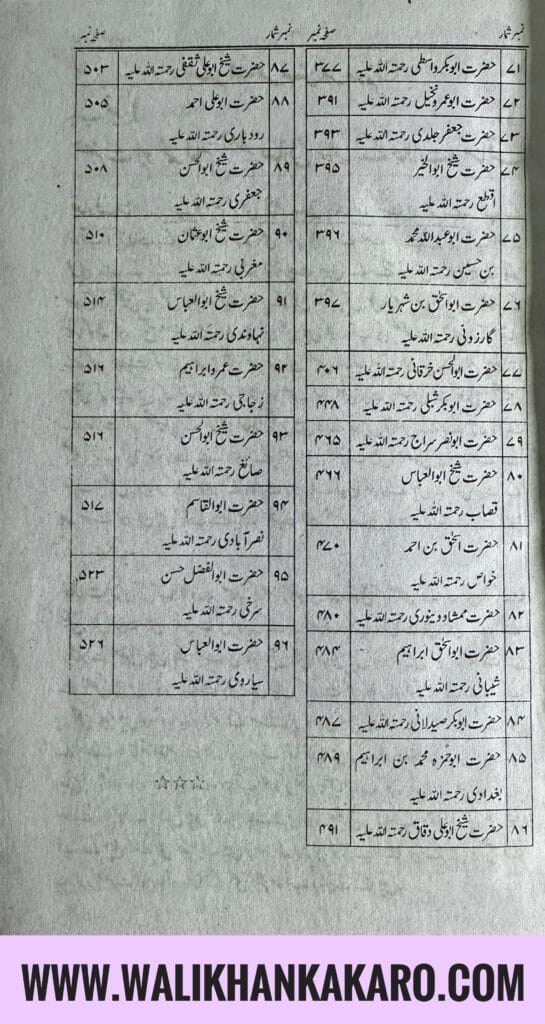 نمبر شمار صفحہ نمبر
۷۱ حضرت ابوبکر واسطی رحمتہ اللہ علیہ ۳۷۷
۷۲ حضرت ابوعمرو نخیل رحمتہ اللہ علیہ ۳۹۱
۷۳ حضرت جعفر جلدی رحمتہ اللہ علیہ ۳۹۳
۷۴ حضرت شیخ ابوالخیر ۳۹۵
اقطع رحمتہ اللہ علیہ
۷۵ حضرت ابوعبداللہ محمد ۳۹۶
بن حسین رحمتہ اللہ علیہ
۷۶ حضرت ابواسحٰق بن شہریار ۳۹۷
گارزونی رحمتہ اللہ علیہ
۷۷ حضرت ابوالحسن خرقانی رحمتہ اللہ علیہ ۴۰۶
۷۸ حضرت ابوبکر شبلی رحمتہ اللہ علیہ ۴۴۸
۷۹ حضرت ابونصر سراج رحمتہ اللہ علیہ ۴۶۵
۸۰ حضرت شیخ ابوالعباس ۴۶۶
قصاب رحمتہ اللہ علیہ
۸۱ حضرت اسحٰق بن احمد ۴۷۰
خواص رحمتہ اللہ علیہ
۸۲ حضرت ممشاد دینوری رحمتہ اللہ علیہ ۴۸۰
۸۳ حضرت ابواسحٰق ابراہیم ۴۸۴
شیبانی رحمتہ اللہ علیہ
۸۴ حضرت ابوبکر صیدلانی رحمتہ اللہ علیہ ۴۸۷
۸۵ حضرت ابوحمزہ محمد بن ابراہیم ۴۸۹
بغدادی رحمتہ اللہ علیہ
۸۶ حضرت شیخ ابوعلی دقاق رحمتہ اللہ علیہ ۴۹۱
نمبر شمار صفحہ نمبر
۸۷ حضرت شیخ ابوعلی ثقفی رحمتہ اللہ علیہ ۵۰۳
۸۸ حضرت ابوعلی احمد ۵۰۵
رودباری رحمتہ اللہ علیہ
۸۹ حضرت شیخ ابوالحسن ۵۰۸
جعفری رحمتہ اللہ علیہ
۹۰ حضرت شیخ ابوعثمان ۵۱۰
مغربی رحمتہ اللہ علیہ
۹۱ حضرت شیخ ابوالعباس ۵۱۴
نہاوندی رحمتہ اللہ علیہ
۹۲ حضرت عمرو ابراہیم ۵۱۶
زجاجی رحمتہ اللہ علیہ
۹۳ حضرت شیخ ابوالحسن ۵۱۶
صائغ رحمتہ اللہ علیہ
۹۴ حضرت ابوالقاسم ۵۱۷
نصرآبادی رحمتہ اللہ علیہ
۹۵ حضرت ابوالفضل حسن ۵۲۳
سرخی رحمتہ اللہ علیہ
۹۶ حضرت ابوالعباس ۵۲۶
سیاروی رحمتہ اللہ علیہ
☆☆☆
WWW.WALIKHANKAKARO.COM